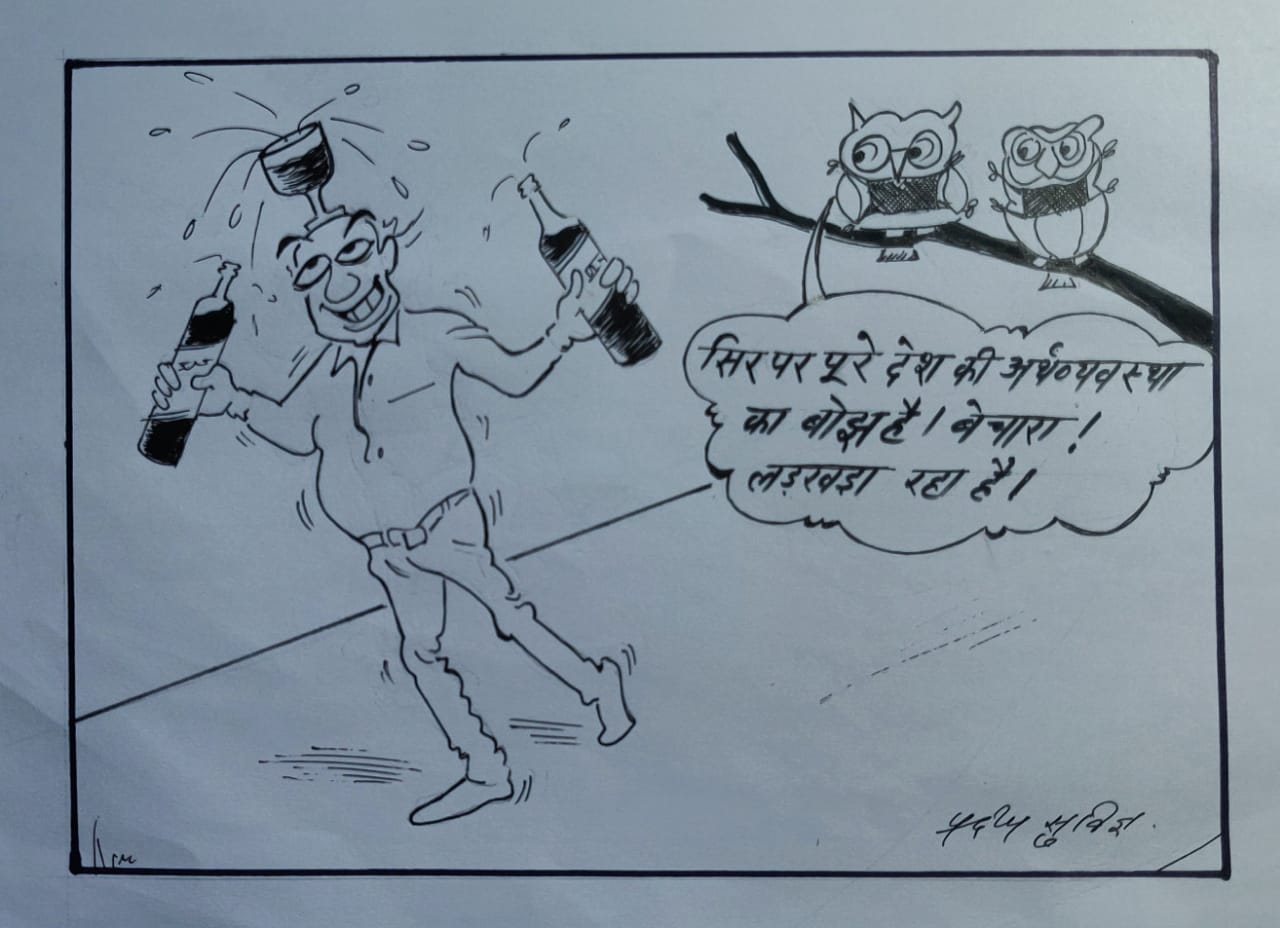 सिर पर पूरे देश की अर्थव्यवस्था
का बोझ है। बेचारा!
लड़खड़ा रहा है।